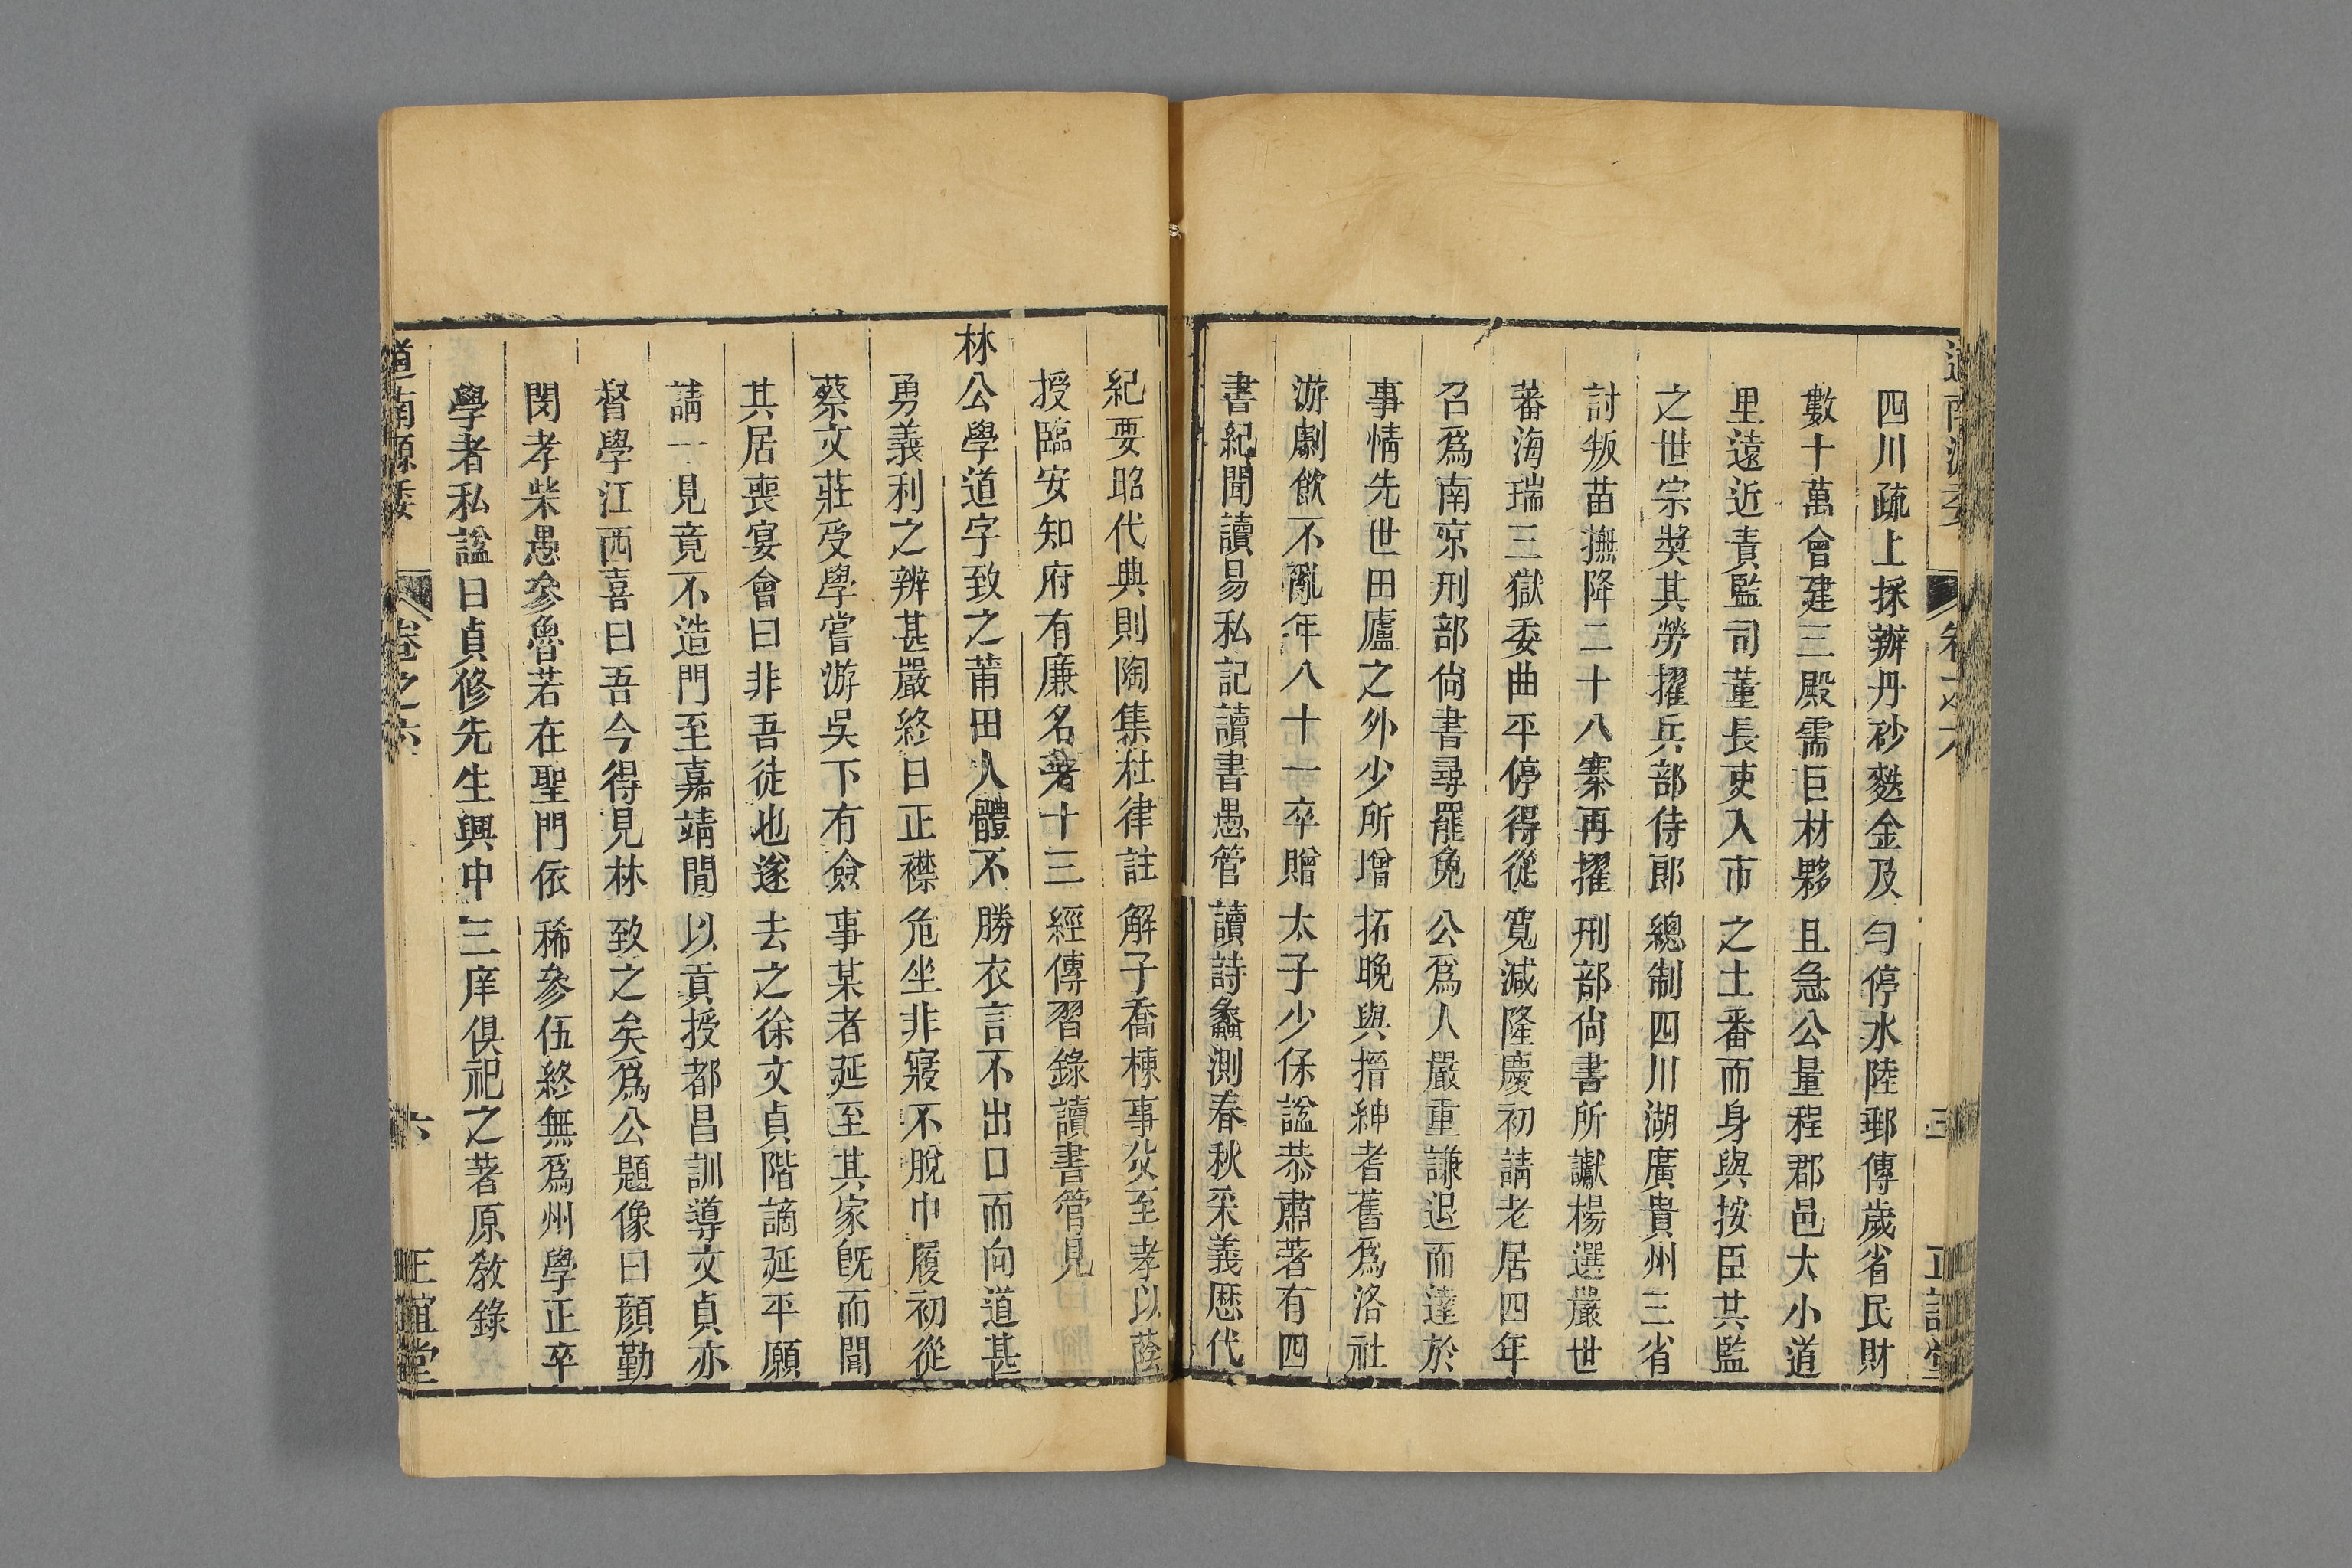 四川疏上採辦丹砂麩金及匀停水陸郵傳歲省民財
數十萬會建三殿需巨材夥且急公量程郡邑大小道
里遠近責監司董長吏入市之土番而身與按臣其監
之世宗奬其勞擢兵部侍郎總制四川湖廣貴州三省
討叛苗撫降二十八寨再擢刑部尙書所讞楊選嚴世
蕃海瑞三獄委曲平停得從寬減隆慶初請老居四年
召爲南京刑部尙書尋罷免公爲人嚴重謙退而達於
事情先世田廬之外少所增拓晚與搢紳耆舊爲洛社
游劇飲不亂年八十一卒贈太子少保諡恭肅著有四
書紀聞讀易私記讀書愚管讀詩蠡測春秋采義歷代
紀要昭代典則陶集杜律註解子喬棟事父至孝以蔭
授臨安知府有廉名著十三經傳習錄讀書管見
林公學道字致之莆田人體不勝衣言不出口而向道甚
勇義利之辨甚嚴終日正襟危坐非寢不脫巾履初從
蔡文莊受學嘗游吳下有僉事某者延至其家旣而聞
其居喪宴會曰非吾徒也遂去之徐文貞階謫延平願
請一見竟不造門至嘉靖閒以貢授都昌訓導文貞亦
督學江西喜曰吾今得見林致之矣爲公題像曰顔勤
閔孝柴愚參魯若在聖門依稀參伍終無爲州學正卒
學者私諡曰貞修先生興中三庠俱祀之著原敎錄
道南源委 卷之六 六 正誼堂